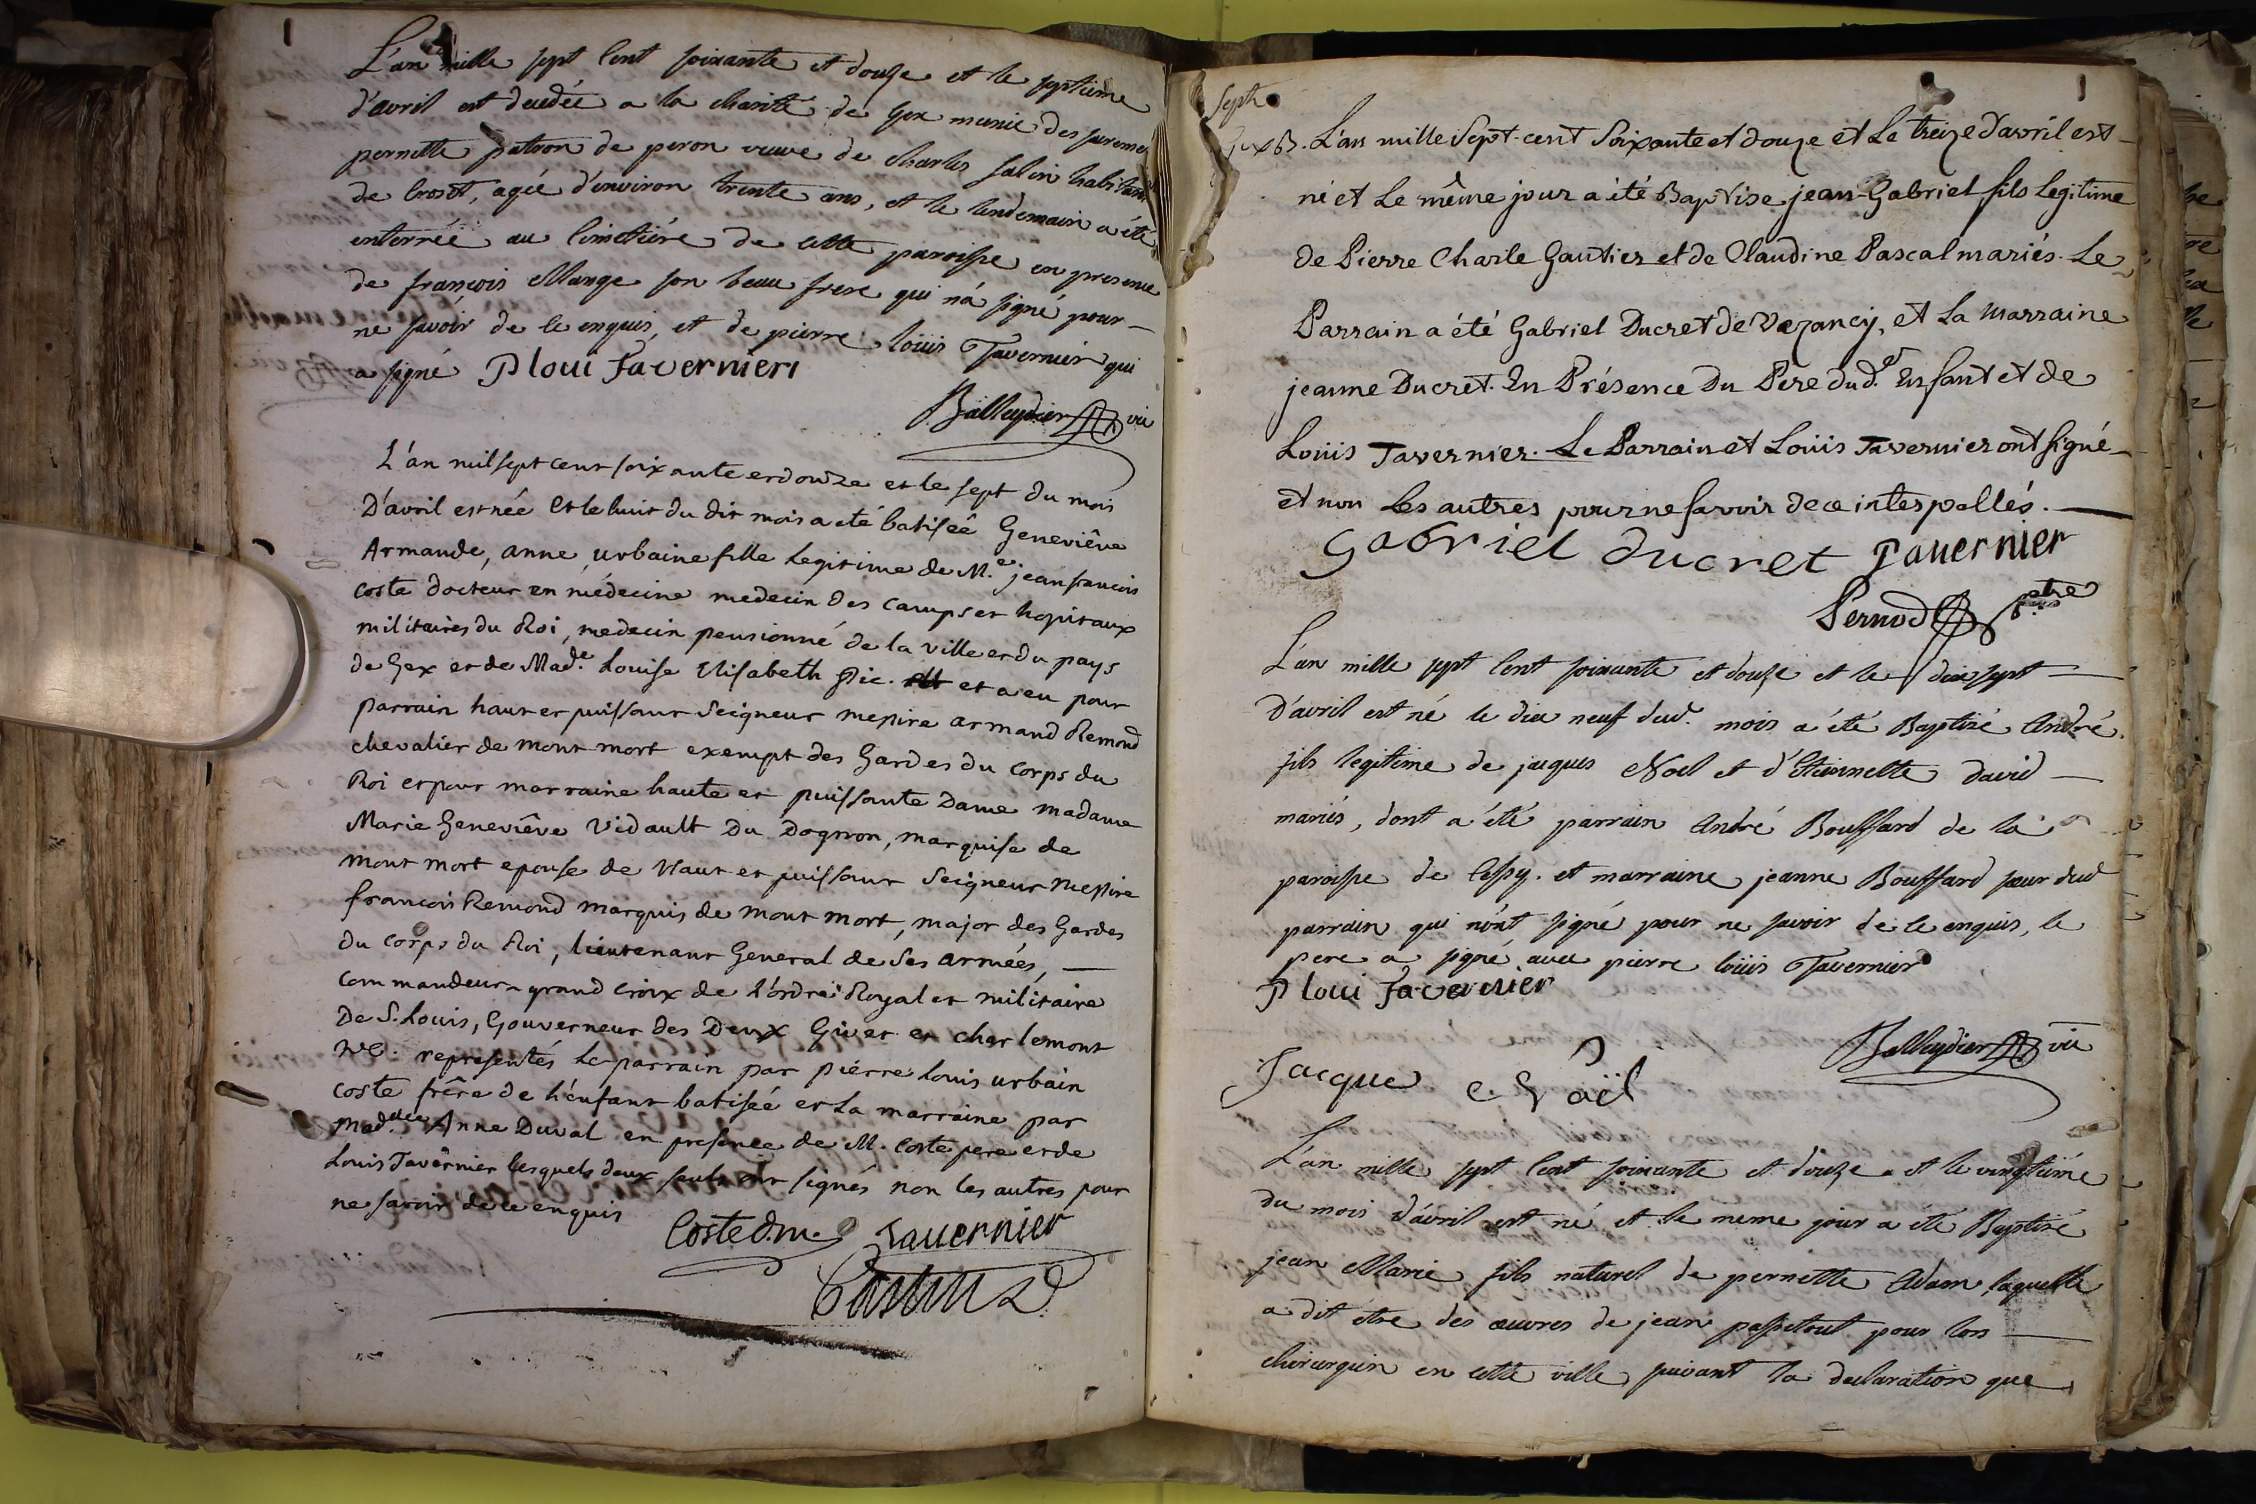 L'an mille sept Cent soixante et douze et le septieme
d'avril est decedée a la charité de Gex munie des sacremens
pernette patron de peron veuve de Charles salin habitant
de Croset, agée d'environ trente ans, et le lendemain a été
enterrée au Cimetiére de cette paroisse en presence
de françois Mange son beau frere qui n'a signé pour
ne savoir de ce enquis, et de pierre loüis Tavernier qui
a signé P loui Tavernier
Balleydier vic
L'an mil sept cent soixante et douze et le sept du mois
D'avril est née et le huit du dit mois a eté batiseé Geneviêve
Armande, anne, urbaine fille Legitime de M.e jean francois
coste docteur en médecine medecin des camps et hopitaux
militaires du Roi, medecin pensionné de la ville et du pays
de Gex et de Mad.e Louise Elisabeth Pic. et a eu pour
parrain haut et puissant Seigneur messire armand Remond
chevalier de mont mort exempt des Gardes du corps du
Roi et pour marraine haute et puissante Dame madame
Marie Geneviêve Vidault Du Dognon, marquise de
mont mort epouse de Haut et puissant Seigneur messire
francois Remond marquis de mont mort, major des Gardes
du corps du Roi, lieutenant General de ses armées,
commandeur grand croix de l'ordre Royal et militaire
De S. Louis, Gouverneur des Deux Givet et charlemont
&c. representés Le parrain par piérre Louis urbain
coste frêre de l'énfant batiseé et la marraine par
mad.lle Anne Duval en presence de M. Coste pere et de
Louis Tavêrnier lesquels deux seuls ont signés non les autres pour
ne savoir de ce enquis
Coste d.m. Tavernier
Castin
Sept.
Gex B. L'an mille Sept-cent Soixante et douze et Le treize d'avril est
né et Le même jour a été Baptise jean-Gabriel fils Legitime
de Pierre Charle Gautier et de Claudine Pascal mariés. Le
Parrain a été Gabriel Ducret de Vezancy, et La Marraine
jeanne Ducret. En Présence Du Pere dud. Enfant et de
Loüis Tavernier. Le Parrain et Loüis Tavernier ont signé
et non Les autres pour ne savoir de ce interpellés.
Gabriel ducret Tavernier
Pernod p.tre
L'an mille sept Cent soixante et douze et le dix sept
D'avril est né le dix neuf dud. mois a été Baptizé André
fils legitime de jaques Noel et d'Etiennette david
mariés, dont a été parrain André Bouffard de la
paroisse de Cessy. et marraine jeanne Bouffard sœur dud
parrain qui n'ont signé pour ne savoir de ce enquis, le
pere a signé avec pierre loüis Tavernier
P loui Tavernier
Balleydier vic
Jacque Noël
L'an mille sept Cent soixante et douze et le vingtiéme
Du mois d'avril est né et le meme jour a été Baptizé
jean Marie fils naturel de pernette Adam laquelle
a dit étre des œuvres de jean passetout pour lors
chirurgien en cette ville, suivant la declaration que